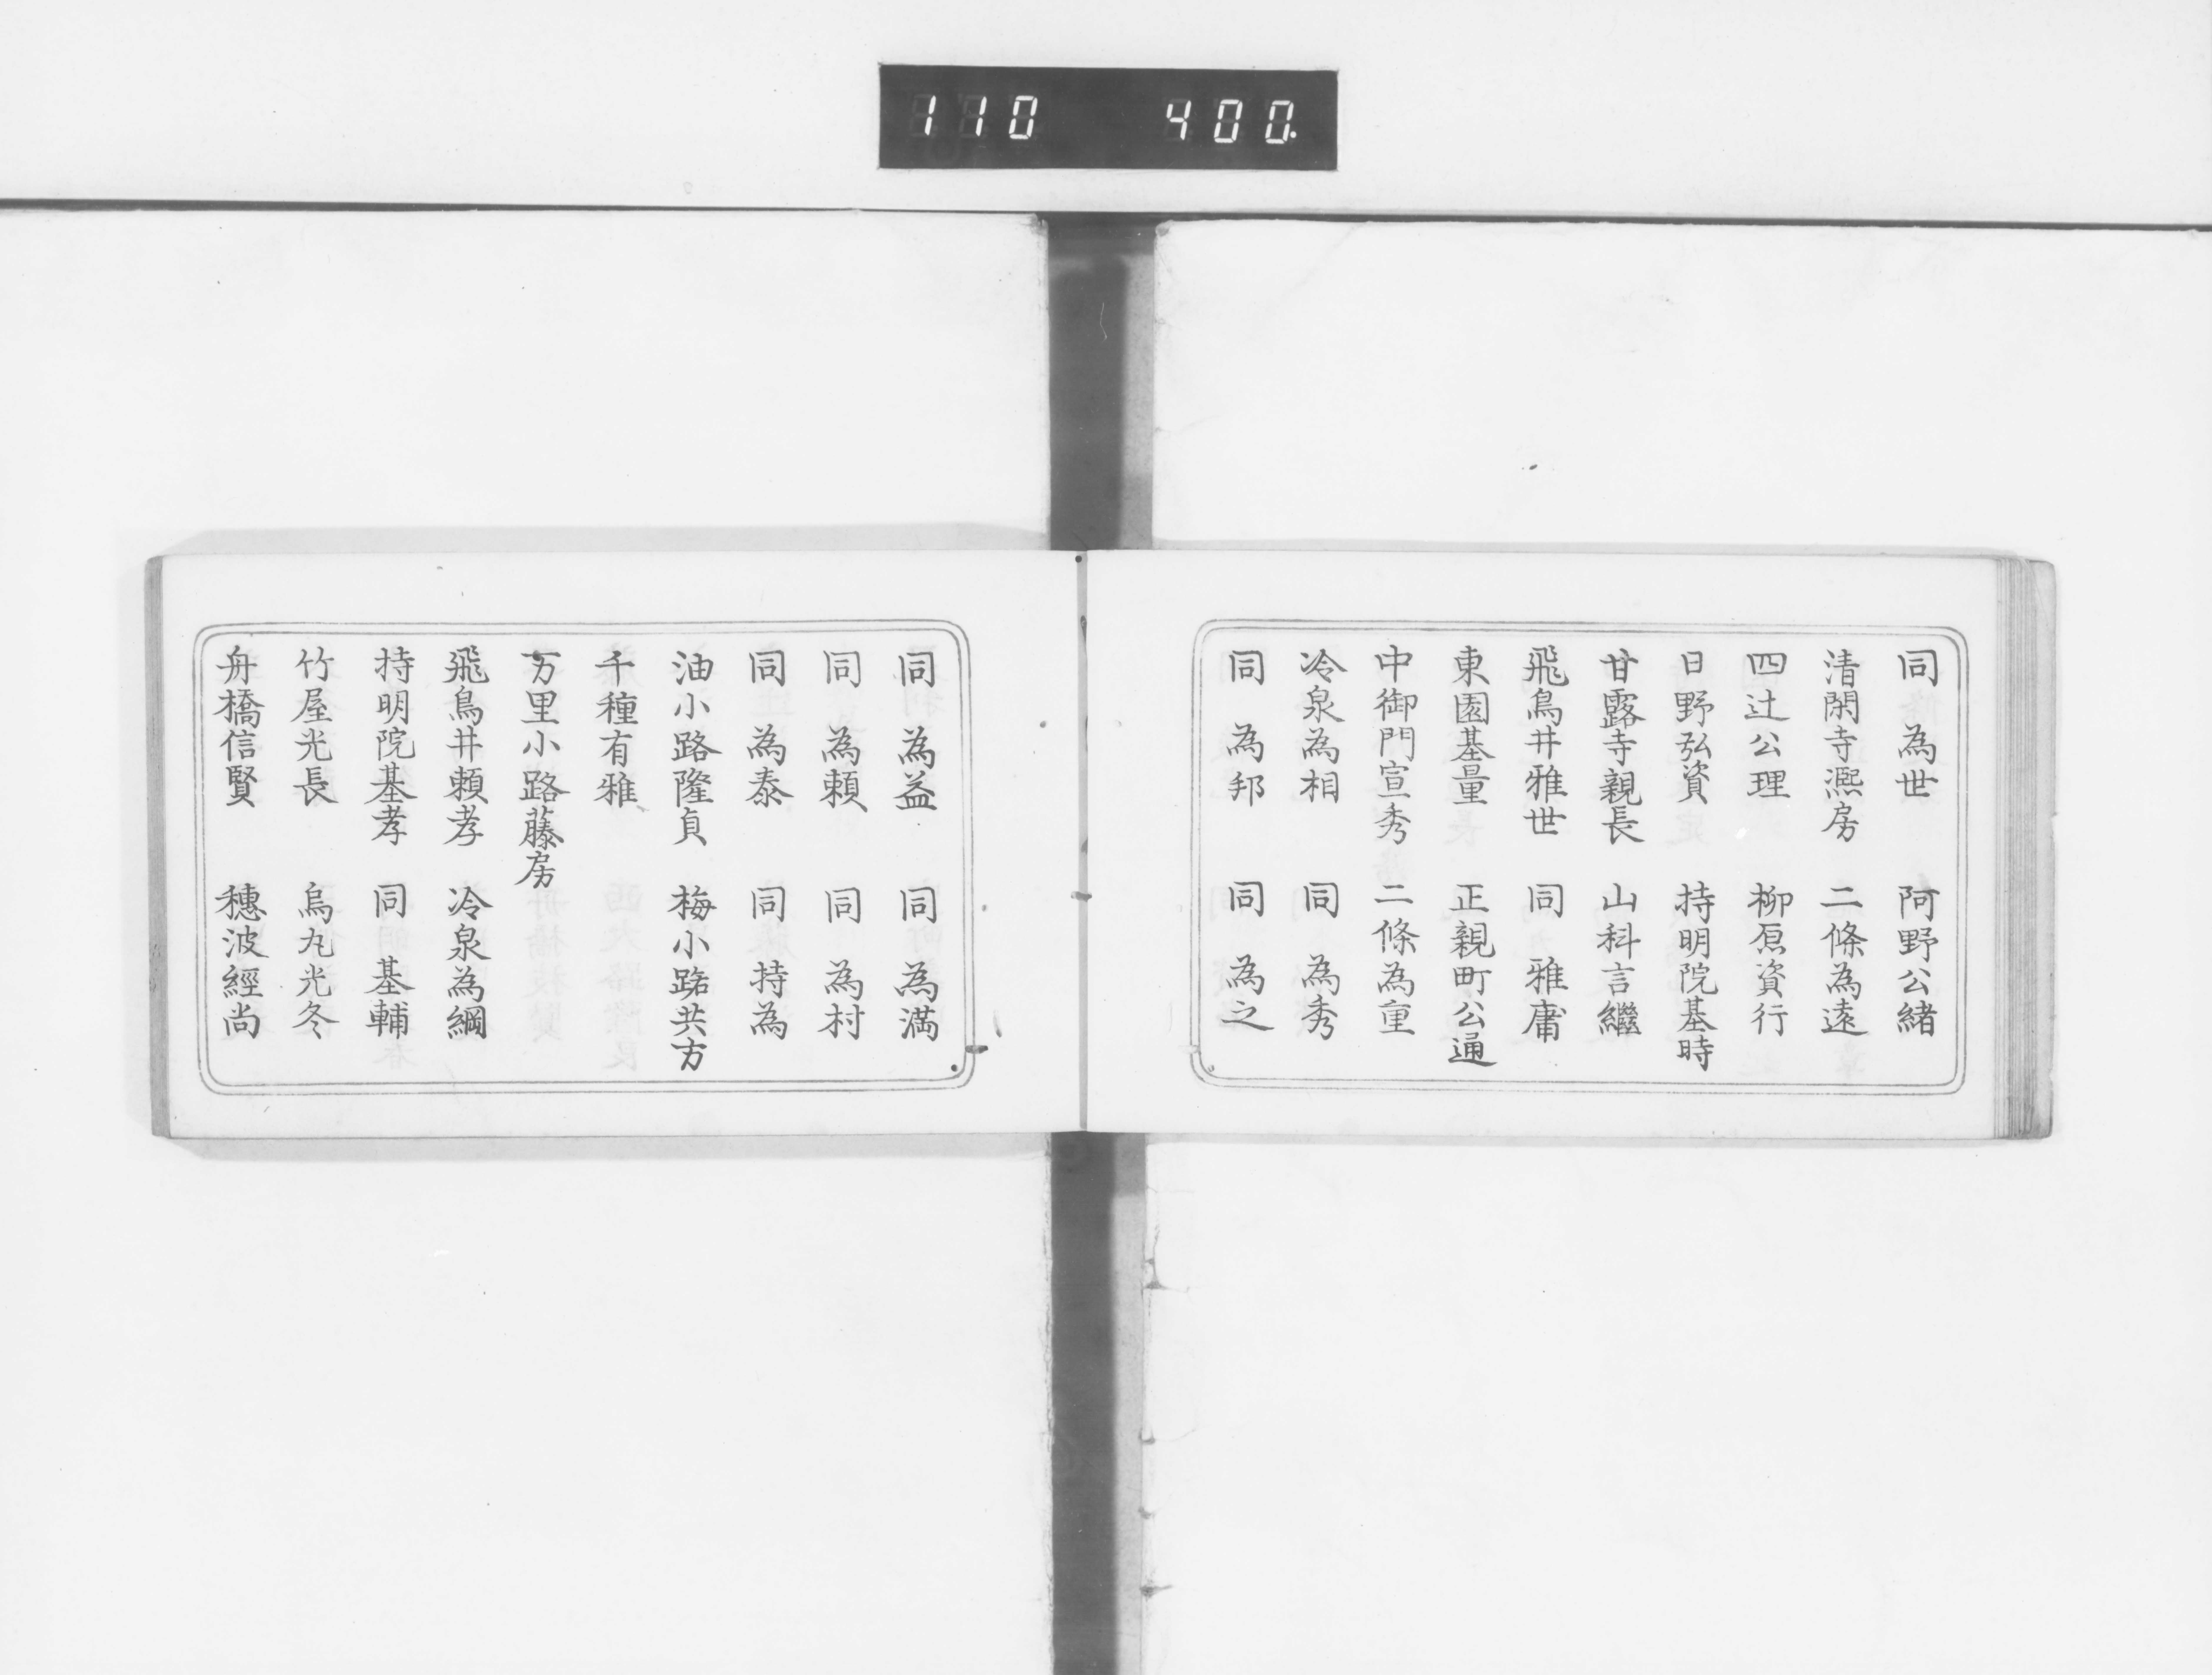 110 400.
同 為世 阿野公緒
清閑寺凞房 二條為遠
四辻公理 柳原資行
日野弘資 持明院基時
甘露寺親長 山科言繼
飛鳥井雅世 同 雅庸
東園基量 正親町公通
中御門宣秀 二條為重
冷泉為相 同 為秀
同 為邦 同 為之
同 為益 同 為満
同 為頼 同 為村
同 為泰 同 持為
油小路隆貞 梅小路共方
千種有雅
万里小路藤房
飛鳥井頼孝 冷泉為綱
持明院基孝 同 基輔
竹屋光長 烏丸光冬
舟橋信賢 穗波經尚